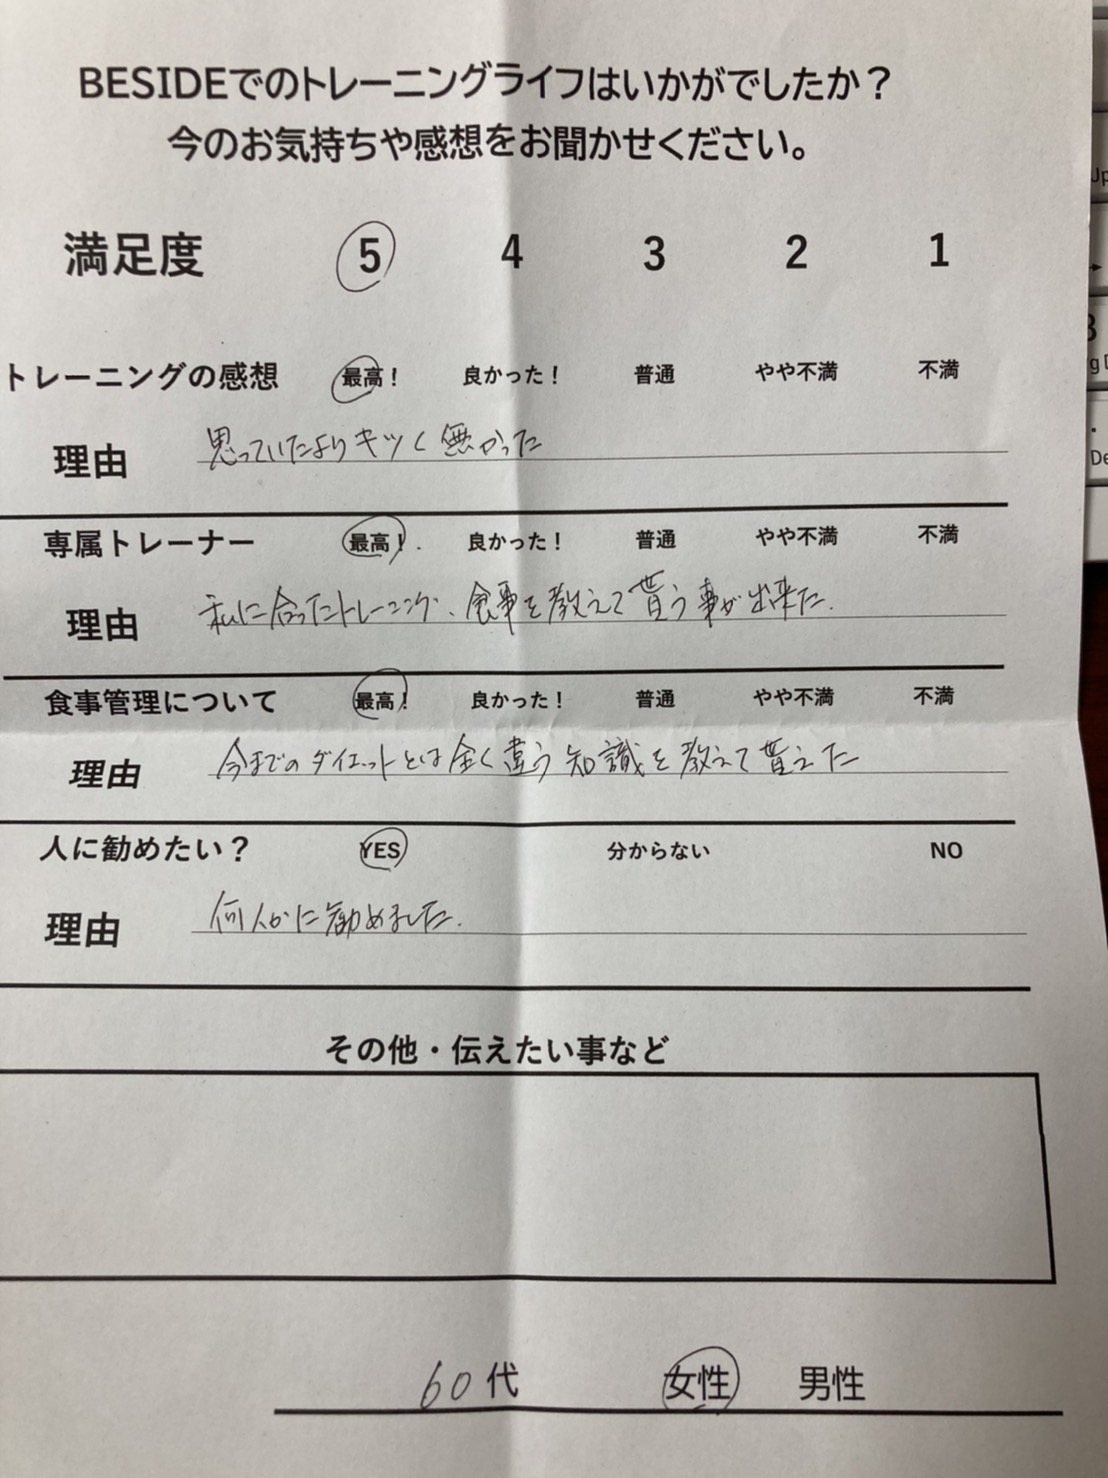 BESIDEでのトレーニングライフはいかがでしたか？
今のお気持ちや感想をお聞かせください。
満足度 5 4 3 2 1
トレーニングの感想 最高！ 良かった！ 普通 やや不満 不満
理由 思っていたよりキツく無かった
専属トレーナー 最高！ 良かった！ 普通 やや不満 不満
理由 私に合ったトレーニング、食事を教えて貰う事が出来た.
食事管理について 最高！ 良かった！ 普通 やや不満 不満
理由 今までのダイエットとは全く違う知識を教えて貰えた
人に勧めたい？ YES 分からない NO
理由 何人かに勧めました.
その他・伝えたい事など
60代 女性 男性